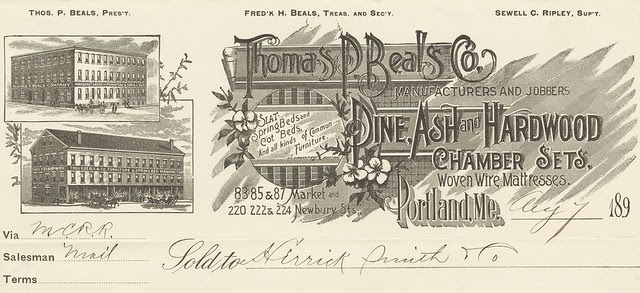 THOS. P. BEALS, PRES'T.
FRED'K H. BEALS, TREAS. AND SEC'Y.
SEWELL C. RIPLEY, SUP'T.
Thomas P. Beals Co.
MANUFACTURERS AND JOBBERS
SLAT
Spring Beds and
Cot Beds,
And all kinds of Common
Furniture.
PINE, ASH and HARDWOOD
CHAMBER SETS.
WOVEN WIRE MATTRESSES.
83 85 & 87 Market and
220 222 & 224 Newbury Sts.
Portland, Me. Aug 7 189
Via M.C.R.R.
Salesman Mail
Terms
Sold to Herrick Smith & Co